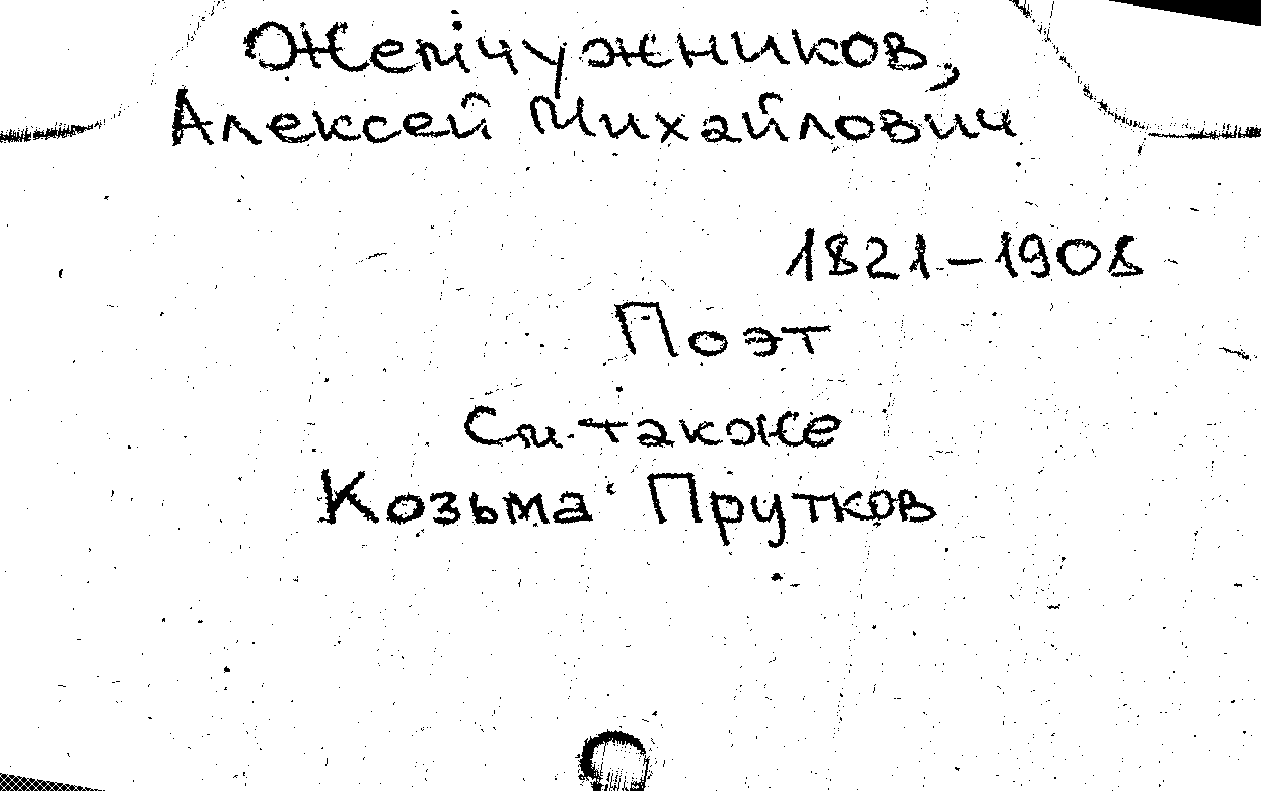 Жемчужников,
Алексей Михайлович
1821-1908
Поэт
См. также
Козьма Прутков